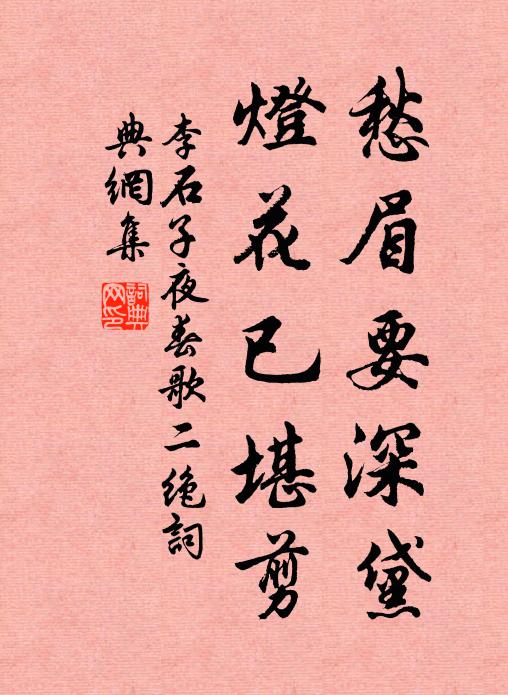 愁眉要深黛
燈花已堪剪
李石子夜春歌二绝詞
典網集
詞典网印